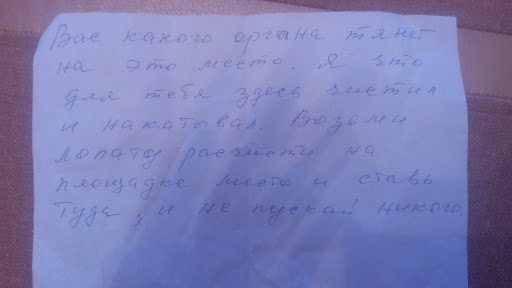 Вас какого органа тянет
на это место. Я что
для тебя здесь чистил
и накатывал. Возьми
лопату расчисти на
площадке место и ставь
туда, и не пускай никого.